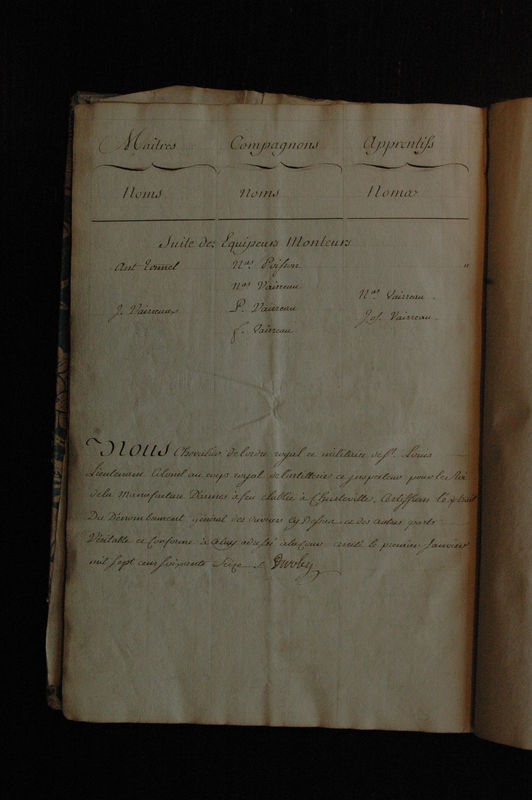 Maîtres Compagnons Apprentifs
Noms Noms Noms
Suite des Equipeurs Monteurs
Ant Tonnel Nas Poisson "
Nas Vairreau
Nas Vairreau
J. Vairreaux P. Vairreau
Jos. Vairreau
f. Vairreau
Nous Chevalier de l'ordre royal et militaire de St. Louis
Lieutenant Colonel au corps royal de l'artillerie et inspecteur pour le Roi
de la Manufacture D'armes à feu établie à Charleville, Certiffions le présent
Du Dénombrement général des ouvriers cy dessus et des autres parts
Véritable et Conforme à celuy adressé à la Cour arrêté le premier Janvier
mil sept cent soixante Seize